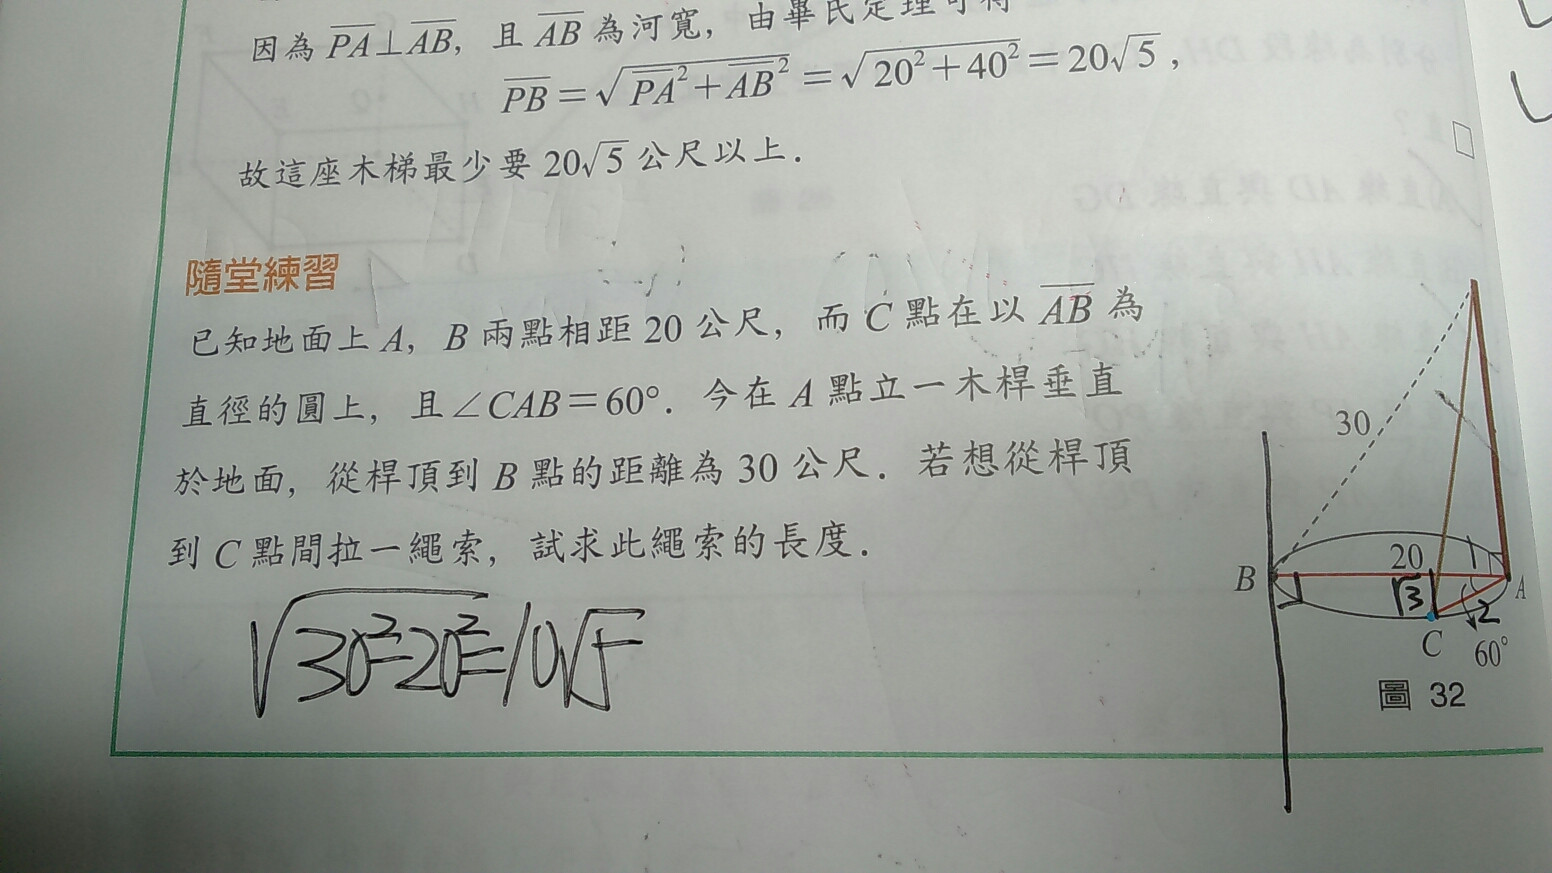 因為 PA⊥AB，且 AB 為河寬，由畢氏定理可得
PB=√PA²+AB²=√20²+40²=20√5，
故這座木梯最少要 20√5 公尺以上．
隨堂練習
已知地面上 A，B 兩點相距 20 公尺，而 C 點在以 AB 為
直徑的圓上，且∠CAB=60°．今在 A 點立一木桿垂直
於地面，從桿頂到 B 點的距離為 30 公尺．若想從桿頂
到 C 點間拉一繩索，試求此繩索的長度．
√30²-20²=10√5
30
20
1
B
A
√3
2
C
60°
圖 32